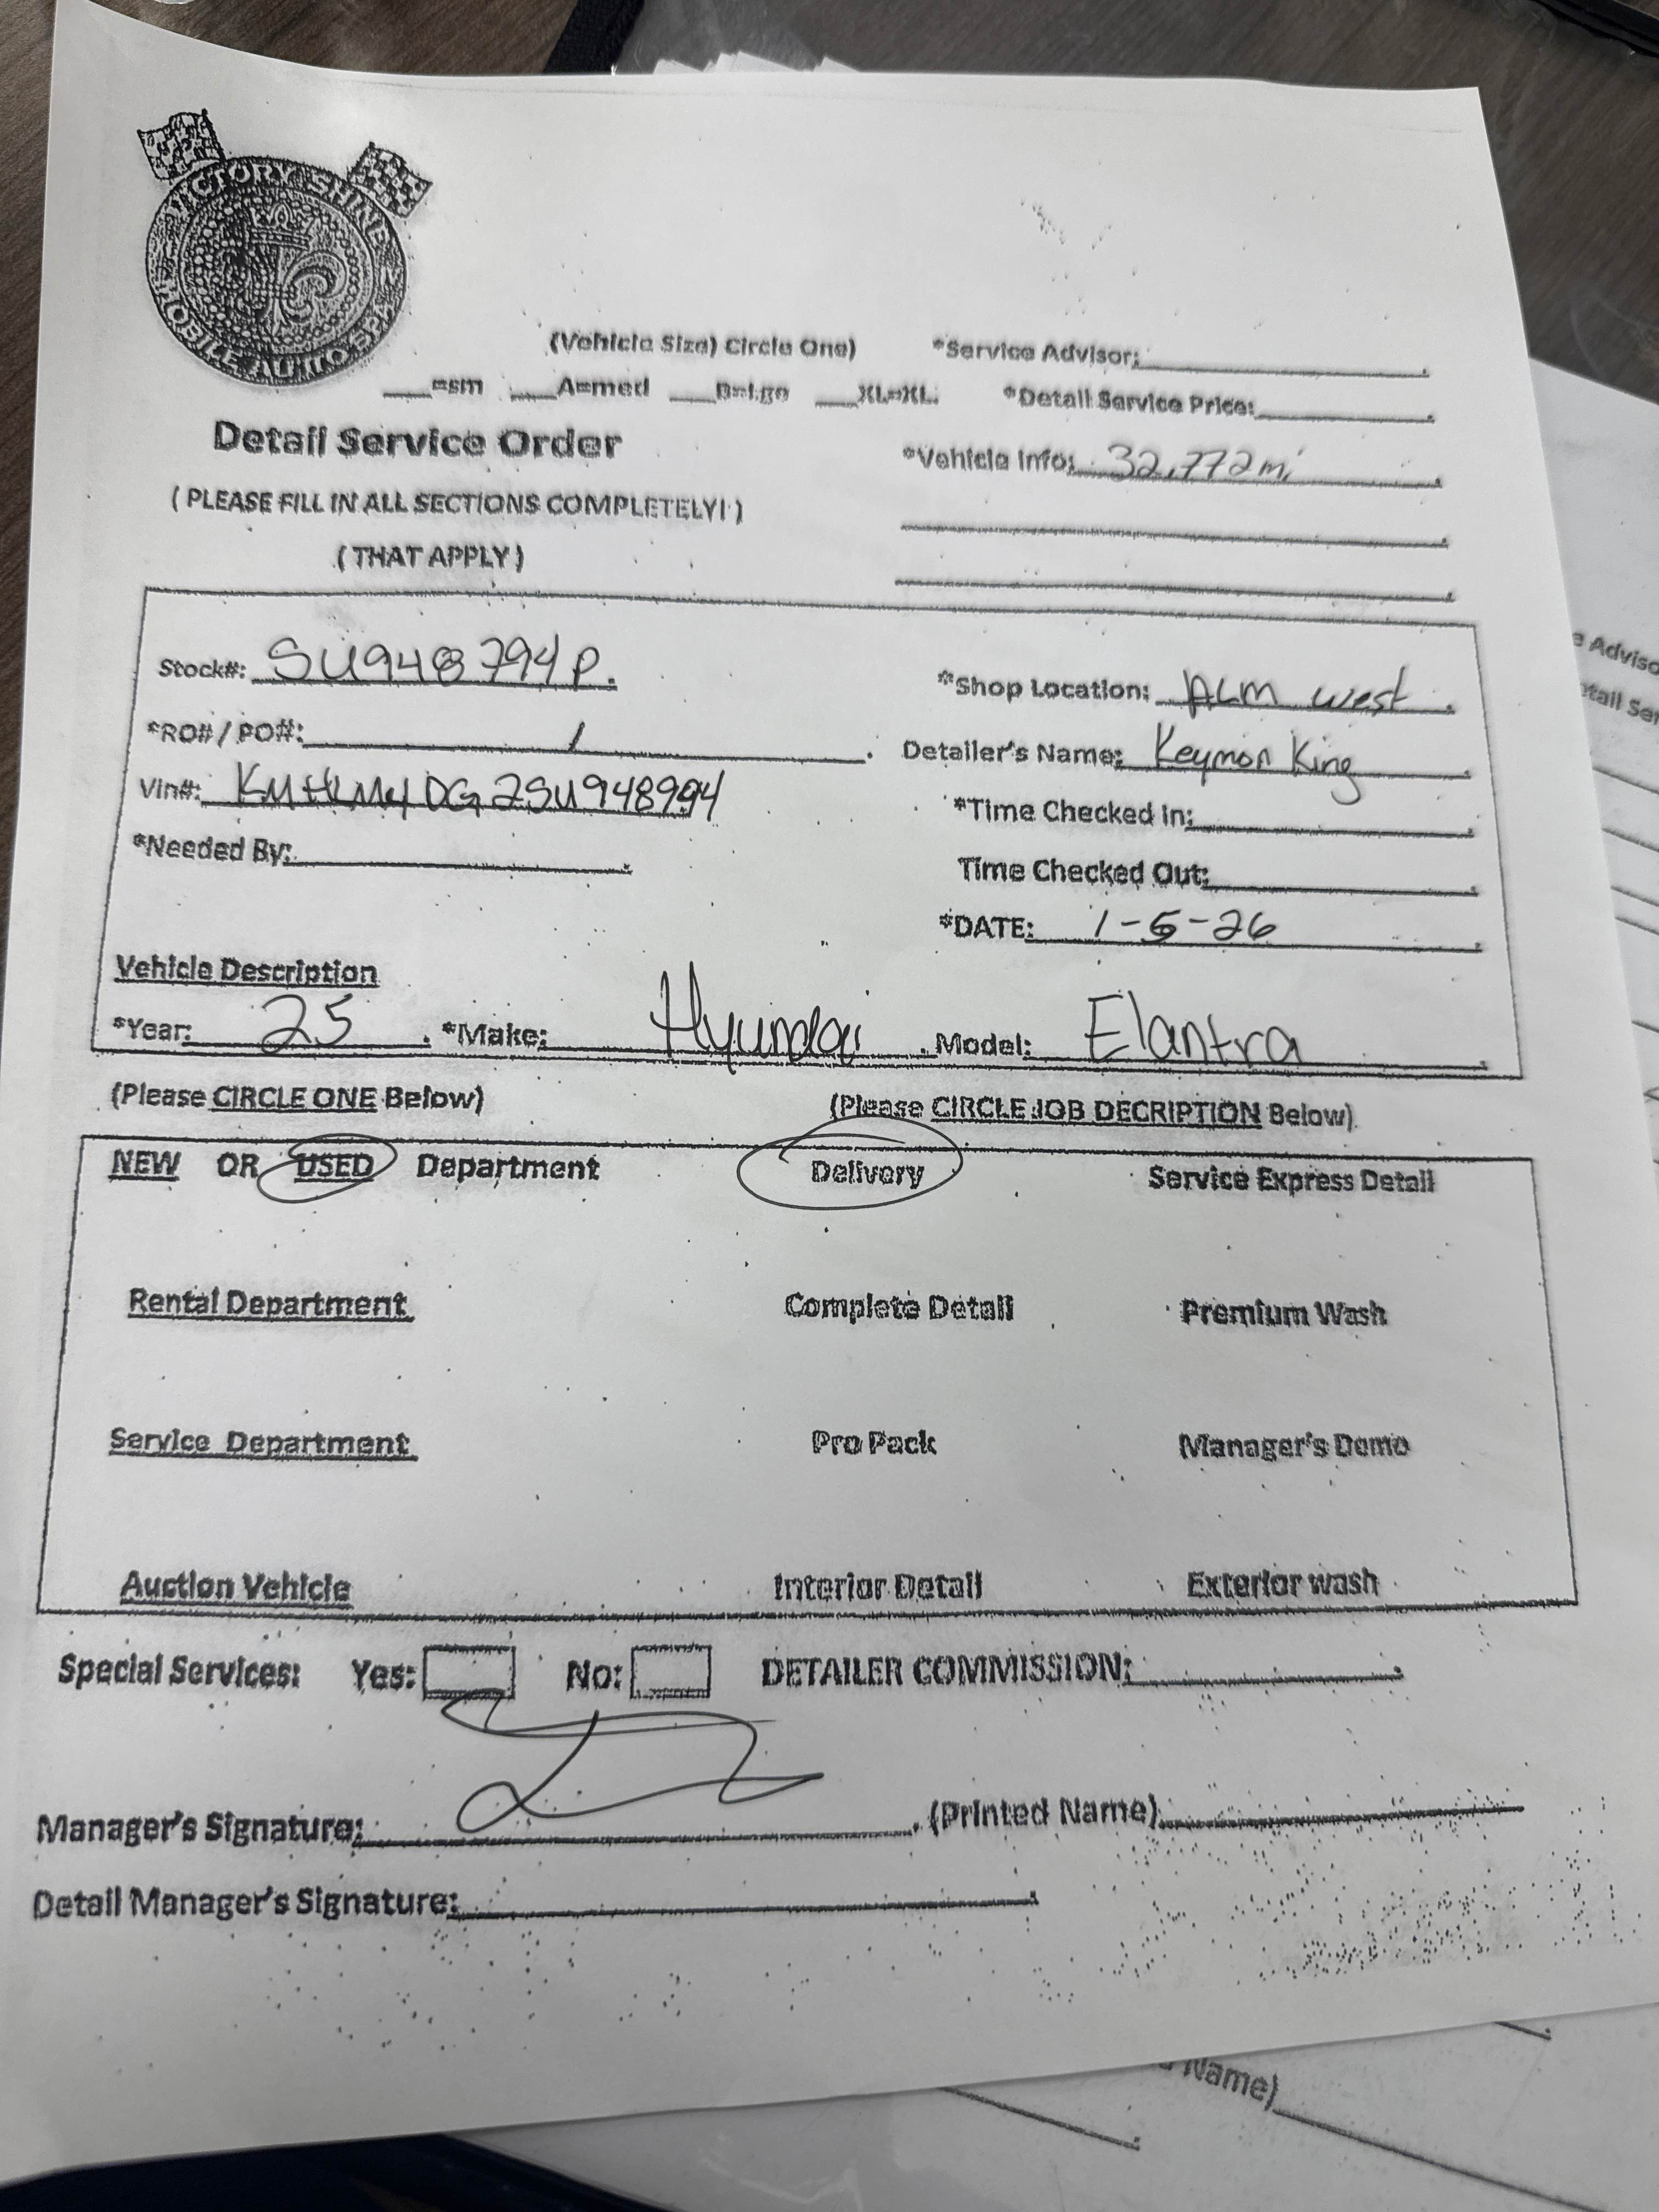 VICTORY SHINE
MOBILE AUTO SPA
(Vehicle Size) Circle One)
*Service Advisor:
=sm A=med B=Lge XL=XL.
*Detail Service Price:
Detail Service Order
*Vehicle Info: 32,772mi
( PLEASE FILL IN ALL SECTIONS COMPLETELY! )
( THAT APPLY )
Stock#: SU948794P.
*Shop Location: ALM west.
*RO# / PO#: /
Detailer's Name: Keymon King
Vin#: KMHLM4DG2SU948994
*Time Checked In:
*Needed By:
Time Checked Out:
*DATE: 1-5-26
Vehicle Description
*Year: 25. *Make: Hyundai. Model: Elantra
(Please CIRCLE ONE Below)
(Please CIRCLE JOB DECRIPTION Below)
NEW OR USED Department
Delivery
Service Express Detail
Rental Department
Complete Detail
Premium Wash
Service Department
Pro Pack
Manager's Demo
Auction Vehicle
Interior Detail
Exterior wash
Special Services: Yes: No: DETAILER COMMISSION:
Manager's Signature: (Printed Name)
Detail Manager's Signature:
e Adviso
etail Ser
Name)